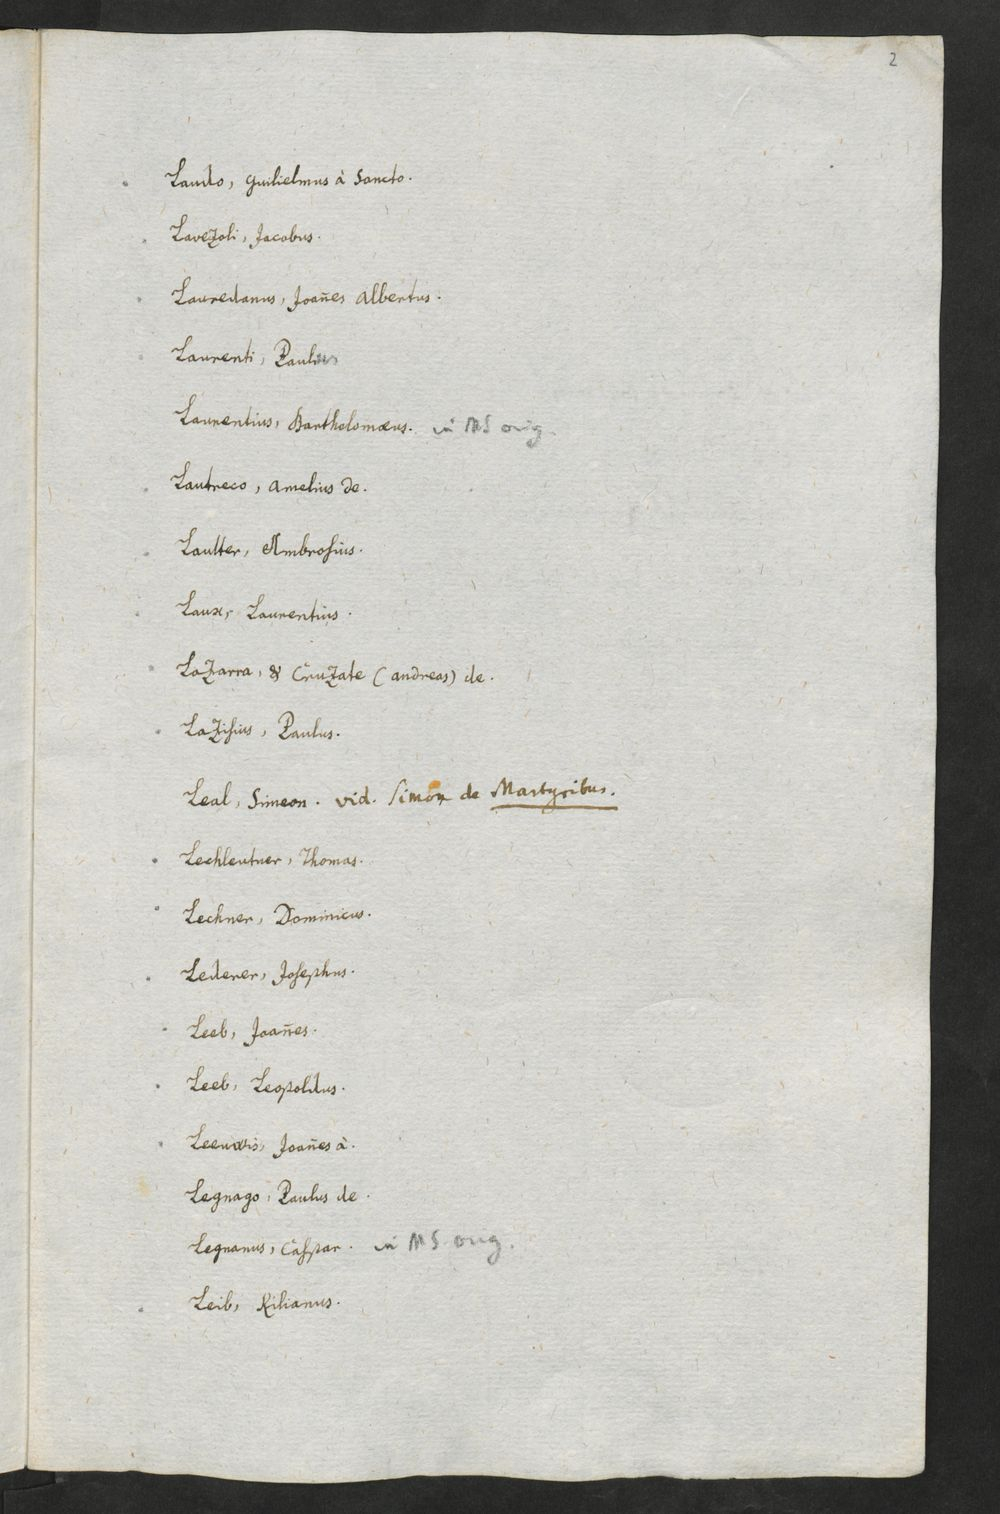 2
Laudo, Guilielmus à Sancto.
Lavezoli, Jacobus.
Lauredanus, Joañes Albertus.
Laurenti, Paulus
Laurentius, Bartholomæus. in MS orig.
Lautreco, Amelius de.
Lautter, Ambrosius.
Laux, Laurentius.
Lazarra, & Cruzate (Andreas) de.
Lazisius, Paulus.
Leal, Simeon. vid. Simon de Martyribus.
Lechleutner, Thomas.
Lechner, Dominicus.
Lederer, Josephus.
Leeb, Joañes.
Leeb, Leopoldus.
Leewis, Joañes à.
Legnago, Paulus de.
Legnanus, Caspar. in MS orig.
Leib, Kilianus.